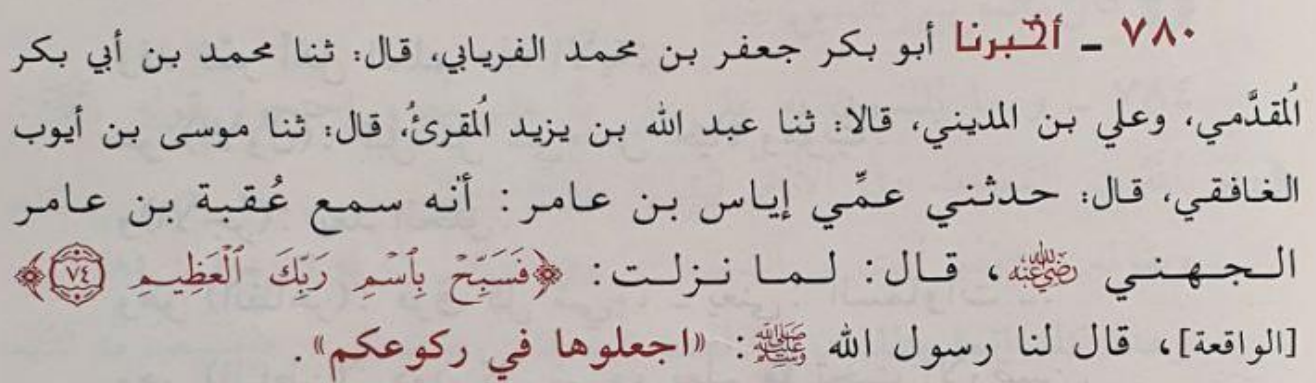 ٧٨٠ - أخبرنا أبو بكر جعفر بن محمد الفريابي، قال: ثنا محمد بن أبي بكر
المقدَّمي، وعلي بن المديني، قالا: ثنا عبد الله بن يزيد المقرئُ، قال: ثنا موسى بن أيوب
الغافقي، قال: حدثني عمِّي إياس بن عامر: أنه سمع عُقبة بن عامر
الجهني رضي الله عنه، قال: لما نزلت: ﴿فَسَبِّحْ بِٱسْمِ رَبِّكَ ٱلْعَظِيمِ ٧٤﴾
[الواقعة]، قال لنا رسول الله ﷺ: «اجعلوها في ركوعكم».